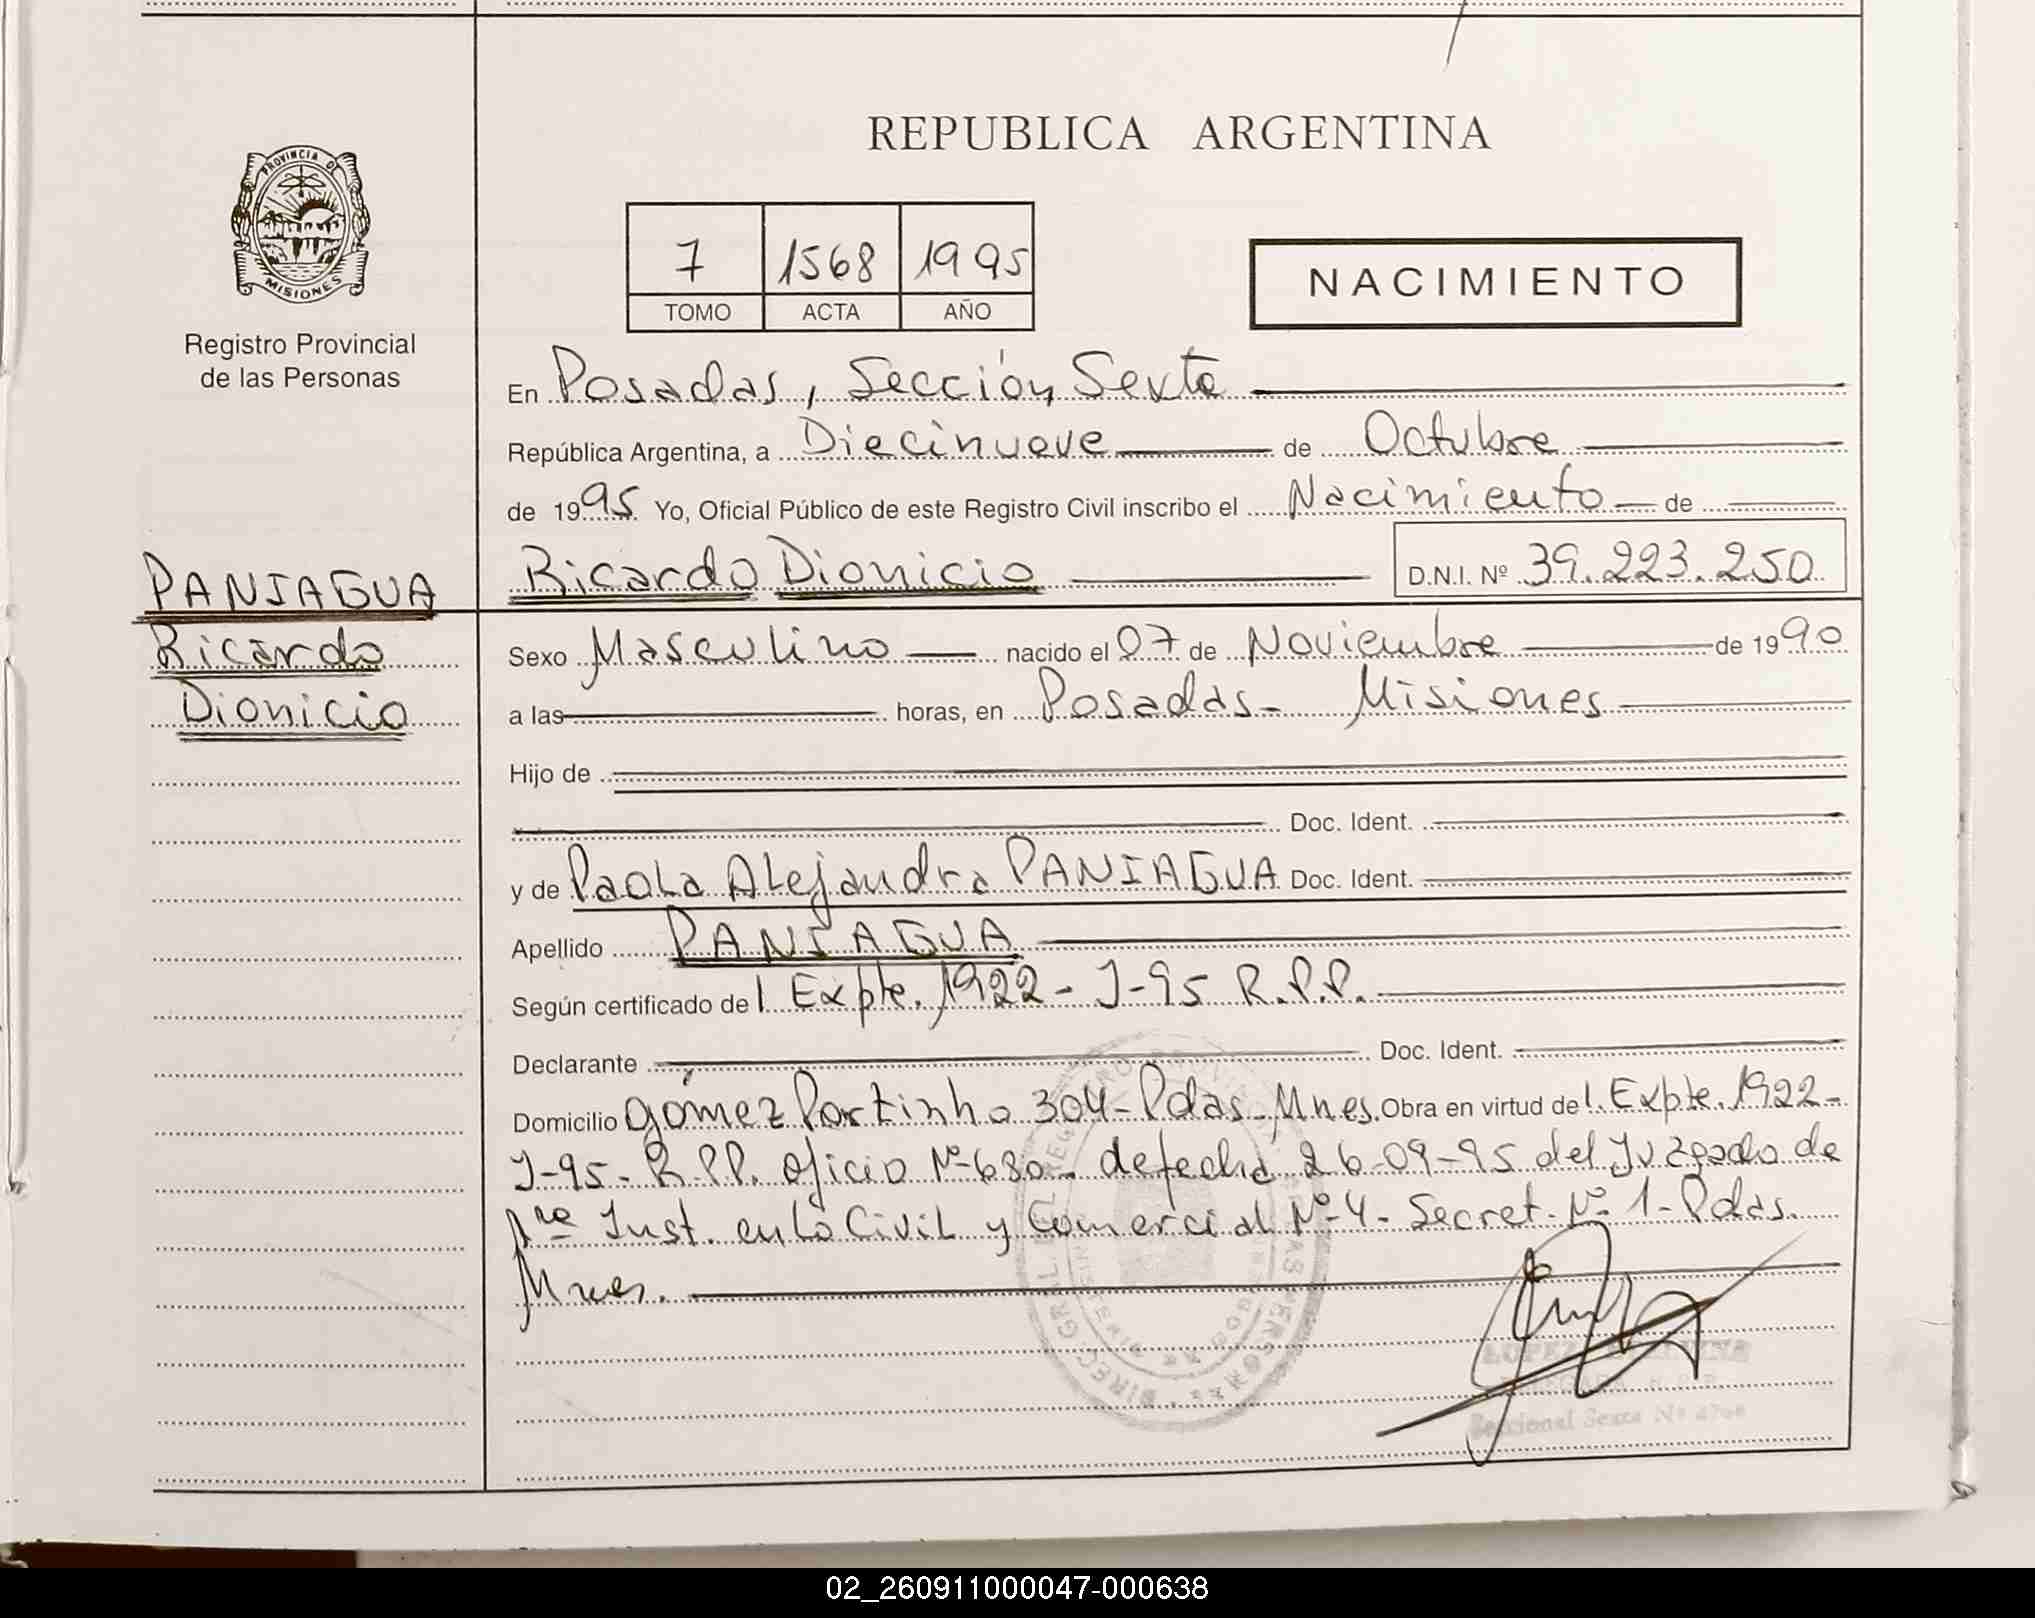 REPUBLICA ARGENTINA
PROVINCIA DE
MISIONES
Registro Provincial
de las Personas
7 1568 1995
TOMO ACTA AÑO
NACIMIENTO
En Posadas, Sección Sexta
República Argentina, a Diecinueve de Octubre
de 1995 Yo, Oficial Público de este Registro Civil inscribo el Nacimiento de
Ricardo Dionicio D.N.I. Nº 39.223.250
PANIAGUA
Ricardo
Dionicio
Sexo Masculino nacido el 07 de Noviembre de 1990
a las horas, en Posadas- Misiones
Hijo de
Doc. Ident.
y de Paola Alejandra PANIAGUA Doc. Ident.
Apellido PANIAGUA
Según certificado del Expte. 1922- J-95 R.P.P.
Declarante Doc. Ident.
Domicilio Gómez Portinho 304- Pdas- Mnes. Obra en virtud del Expte. 1922-
J-95- R.P.P. Oficio Nº-680- de fecha 26-09-95 del Juzgado de
1ra Inst. en lo Civil y Comercial Nº-4- Secret. Nº 1- Pdas.
Mnes.
LOPEZ
Seccional Sexta Nº
02_260911000047-000638